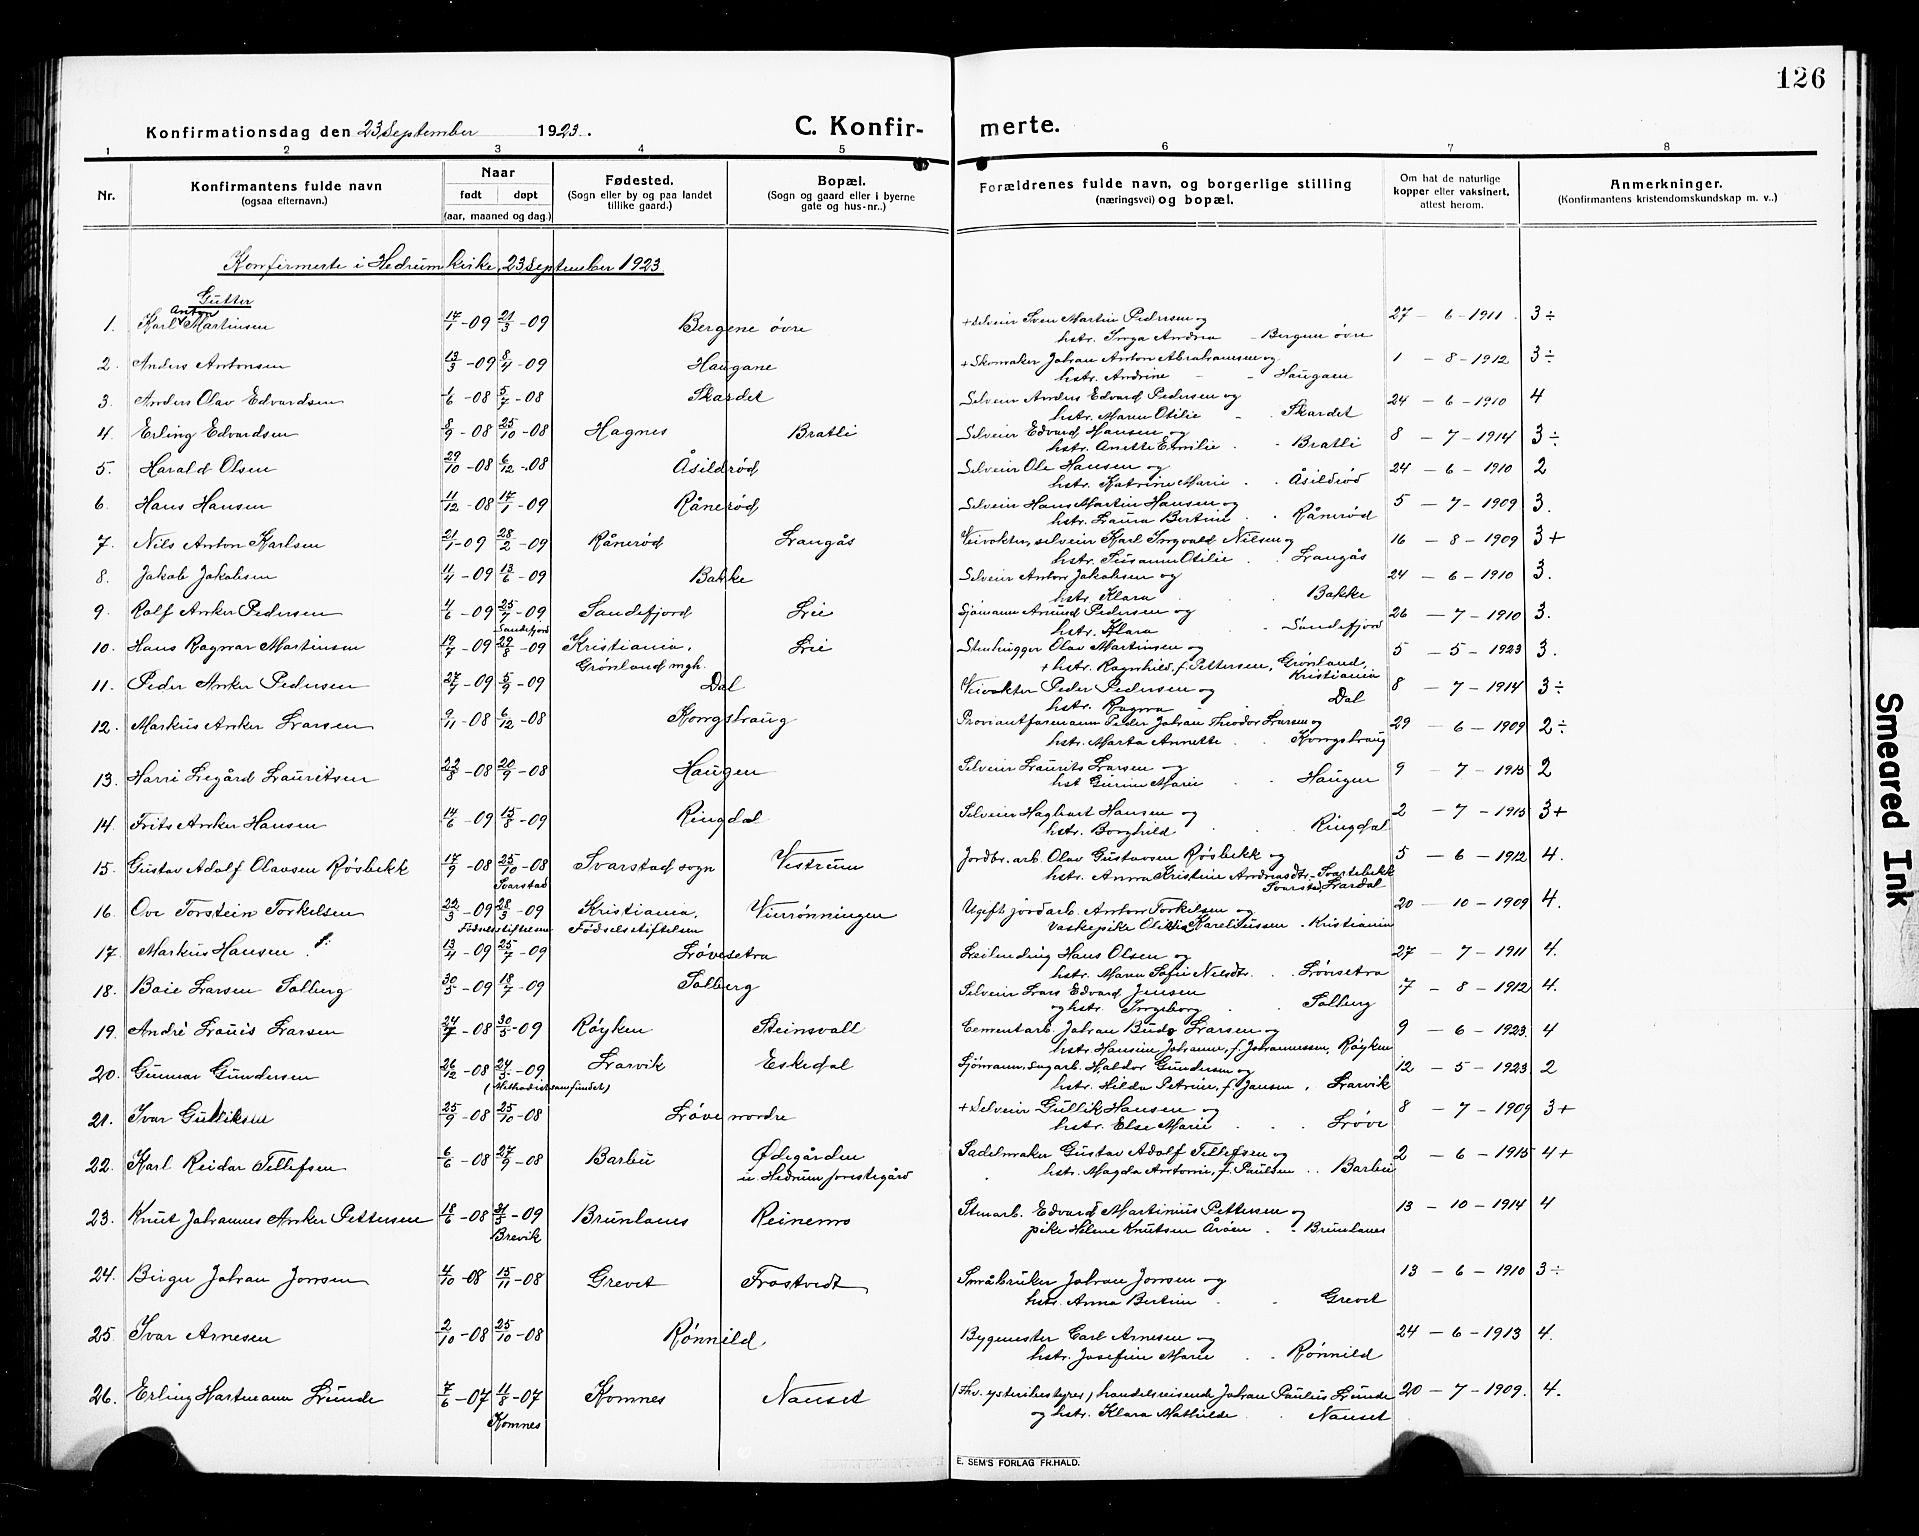 126
Konfirmationsdag den 23 September 1923.
C. Konfir-
merte.
1 2 3 4 5 6 7 8
Nr.
Konfirmantens fulde navn
(ogsaa efternavn.)
Naar
født døpt
(aar, maaned og dag.)
Fødested.
(Sogn eller by og paa landet
tillike gaard.)
Bopæl.
(Sogn og gaard eller i byerne
gate og hus-nr..)
Forældrenes fulde navn, og borgerlige stilling
(næringsvei) og bopæl.
Om hat de naturlige
kopper eller vaksinert,
attest herom.
Anmerkninger.
(Konfirmantens kristendomskundskap m. v..)
Konfirmerte i Hedrum kirke, 23 September 1923
Gutter
1. Karl Anton Martinsen 17/1-09 21/3-09 Bergene øvre + Selveier Sven Martin Pedersen og 27-6-1911. 3÷
hstr. Inga Andrea - Bergene øvre
2. Anders Antonsen 13/3-09 8/4-09 Haugane + Skomaker Johan Anton Abrahamsen og 1-8-1912 3÷
hstr. Andrine - - Haugaen
3. Anders Olav Edvardsen 1/6-08 5/7-08 Skardet Selveier Anders Edvard Pedersen og 24-6-1910 4
hstr. Maren Otilie - . Skardet
4. Erling Edvardsen 8/9-08 25/10-08 Hagnes Bratli Selveier Edvard Hansen og 8-7-1914 3÷
hstr. Anette Emilie . - Bratli
5. Harald Olsen 29/10-08 6/12-08 Åsildrød Selveier Ole Hansen og 24-6-1910 2
hstr. Katrine Marie . . Åsildrød
6. Hans Hansen 11/12-08 17/1-09 Rånerød Selveier Hans Martin Hansen og 5-7-1909 3.
hstr. Laura Bertine . . Rånerød
7. Nils Anton Karlsen 21/1-09 28/2-09 Rånerød Langås Veivokter, selveier Karl Ingvald Nilsen og 16-8-1909 3+
hstr. Susann Otilie . . Langås
8. Jakob Jakobsen 11/4-09 13/6-09 Bakke Selveier Anton Jakobsen og 24-6-1910 3.
hstr. Klara . . Bakke
9. Rolf Anker Pedersen 4/6-09 25/7-09 Sandefjord Lie Sjømann Amund Pedersen og 26-7-1910 3.
Sandefjord hstr. Klara . - Sandefjord
10. Hans Ragnar Martinsen 19/7-09 29/8-09 Kristiania, Lie Stenhugger Olav Martinsen og 5-5-1923 3.
Grønland mgh. + hstr. Ragnhild, f. Pettersen, Grønland, Kristiania
11. Peder Anker Pedersen 27/7-09 5/9-09 Dal Veivokter Peder Pedersen og 8-7-1914 3÷
hstr. Ragna Dal
12. Markus Anker Larsen 9/11-08 6/12-08 Kongshaug Proviantformann Peder Johan Theodor Larsen og 29-6-1909 2÷
hstr. Marta Annette . . Kongshaug
13. Harri Legård Lauritsen 22/8-08 20/9-08 Haugen Selveier Laurits Larsen og 9-7-1915 2
hst Gurine Marie . Haugen
14. Frits Anker Hansen 14/6-09 15/8-09 Ringdal Selveier Hagbart Hansen og 2-7-1915 3+
hstr. Borghild . . Ringdal
15. Gustav Adolf Olavsen Røsbekk 17/9-08 25/10-08 Svarstad sogn Vestrum Jordbr.arb. Olav Gustavsen Røsbekk og 5-6-1912 4.
Svarstad hstr. Anna Kristine Andreasdtr. - Svartebekk
Svarstad, Lardal
16. Ove Torstein Torkelsen 22/3-09 28/3-09 Kristiania, Vierrønningen Ugift jordarb. Anton Torkelsen og 20-10-1909 4.
Fødselsstiftelsen Fødselsstiftelsen Vaskepike Olivia Kareliussen . Kristiania
17. Markus Hansen 13/4-09 25/7-09 Løvesetra Leilending Hans Olsen og 27-7-1911 4.
hstr. Maren Sofie Nilsdtr. . . Løvesetra
18. Boie Larsen Solberg 30/5-09 18/7-09 Solberg Selveier Lars Edvard Jensen 7-8-1912 4.
og hstr. Ingeborg . . Solberg
19. André Louis Larsen 24/7-08 30/5-09 Røyken Steinsvoll Cementarb. Johan Budo Larsen og 9-6-1923. 4
hstr. Hansine Johanne, f. Johannessen, Røyken
20. Gunnar Gundersen 26/12-08 24/5-09 Larvik Eskedal Sjømann, sagarb. Haldor Gundersen og 12-5-1923 2
(Methodistsamfundet) hstr. Hilda Petrine, f. Jansen, Larvik
21. Ivar Gulliksen 25/9-08 25/10-08 Løve nordre + Selveier Gullik Hansen og 8-7-1909 3+
hstr. Else Marie . . Løve
22. Karl Reidar Tellefsen 6/6-08 27/9-08 Barbu Ødegården Sadelmaker Gustav Adolf Tellefsen og 2-6-1915 4+
u. Hedrum prestegård hstr. Magda Antonie, f. Paulsen . . Barbu
23. Knut Johannes Anker Pettersen 18/6-08 31/5-09 Brunlanes Reinemo Stenarb. Edvard Martinius Pettersen og 13-10-1914 4
Brevik pike Helene Knutsen Åröen . . Brunlanes
24. Birger Johan Jonsen 4/10-08 15/11-08 Grevet Frostvedt Småbruker Johan Jonsen og 13-6-1910 3÷
hstr. Anna Bertine . . Grevet
25. Ivar Arnesen 2/10-08 25/10-08 Rønnild Bygmester Carl Arnesen og 24-6-1913 4.
hstr. Josefine Marie . . Rønnild
26. Erling Hartmann Lunde 7/6-07 11/8-07 Komnes Nanset (Fhv. ysteribestyrer) handelsreisende Johan Paulus Lunde 20-7-1909. 4.
Komnes og hstr. Klara Mathilde . . Nanset
E. SEM'S FORLAG FR.HALD.
Smeared Ink